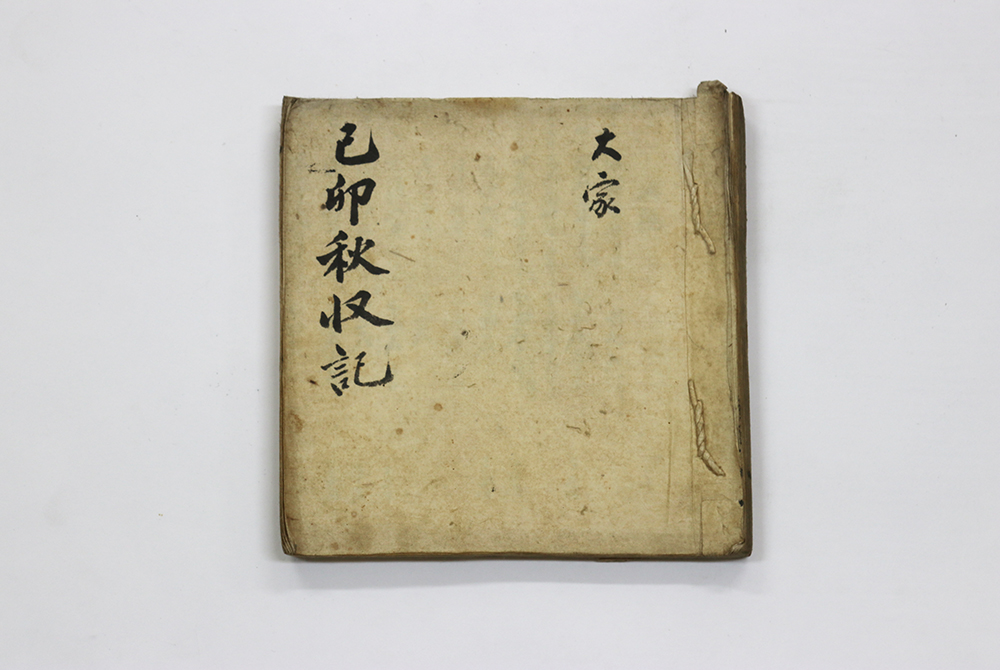 大家
己卯秋収記